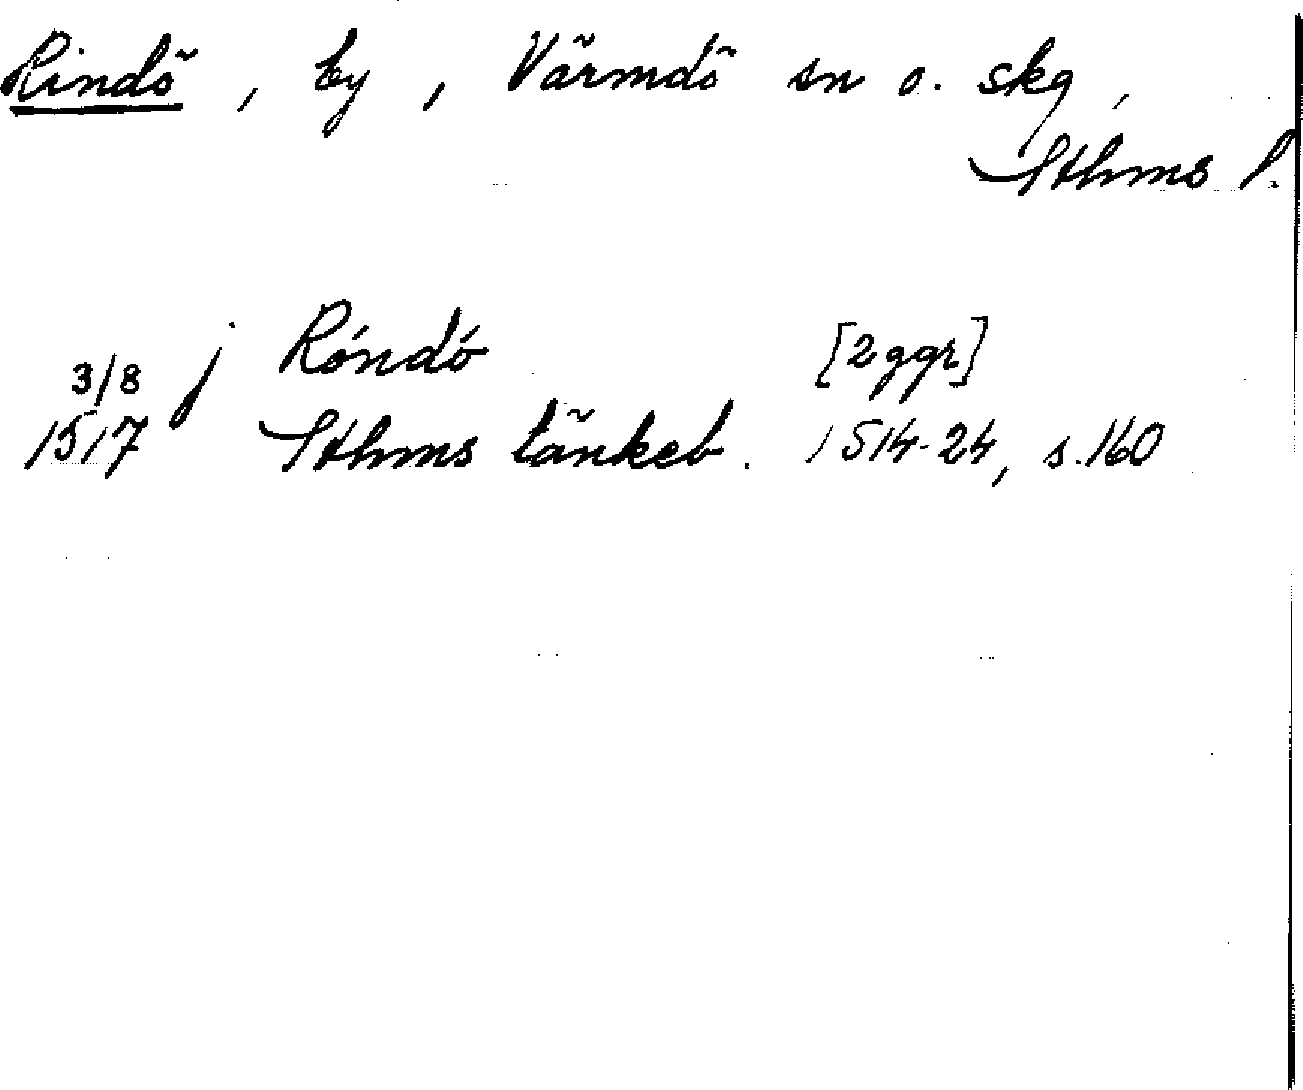 Rindö, by, Värmdö sn o. skg,
Sthms l.
j Róndó [2 ggr]
3/8
1517 Sthms tänkeb. 1514-24, s. 160